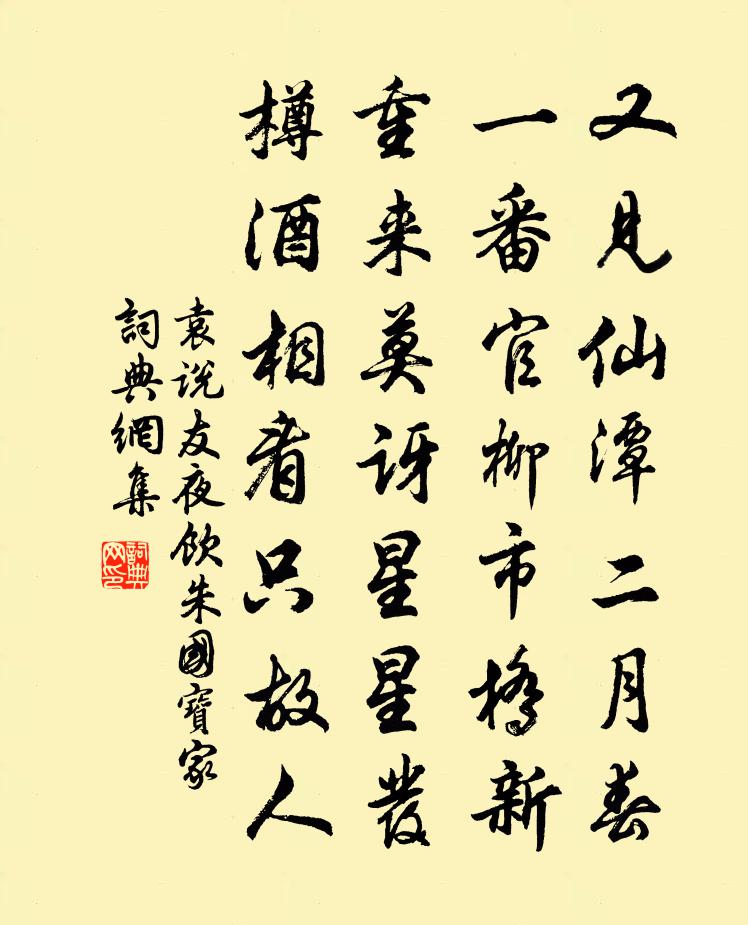 又見仙潭二月春
一番官柳市橋新
重来莫訝星星發
樽酒相看只故人
袁説友夜飲朱國寶家
詞典網集
詞典網印